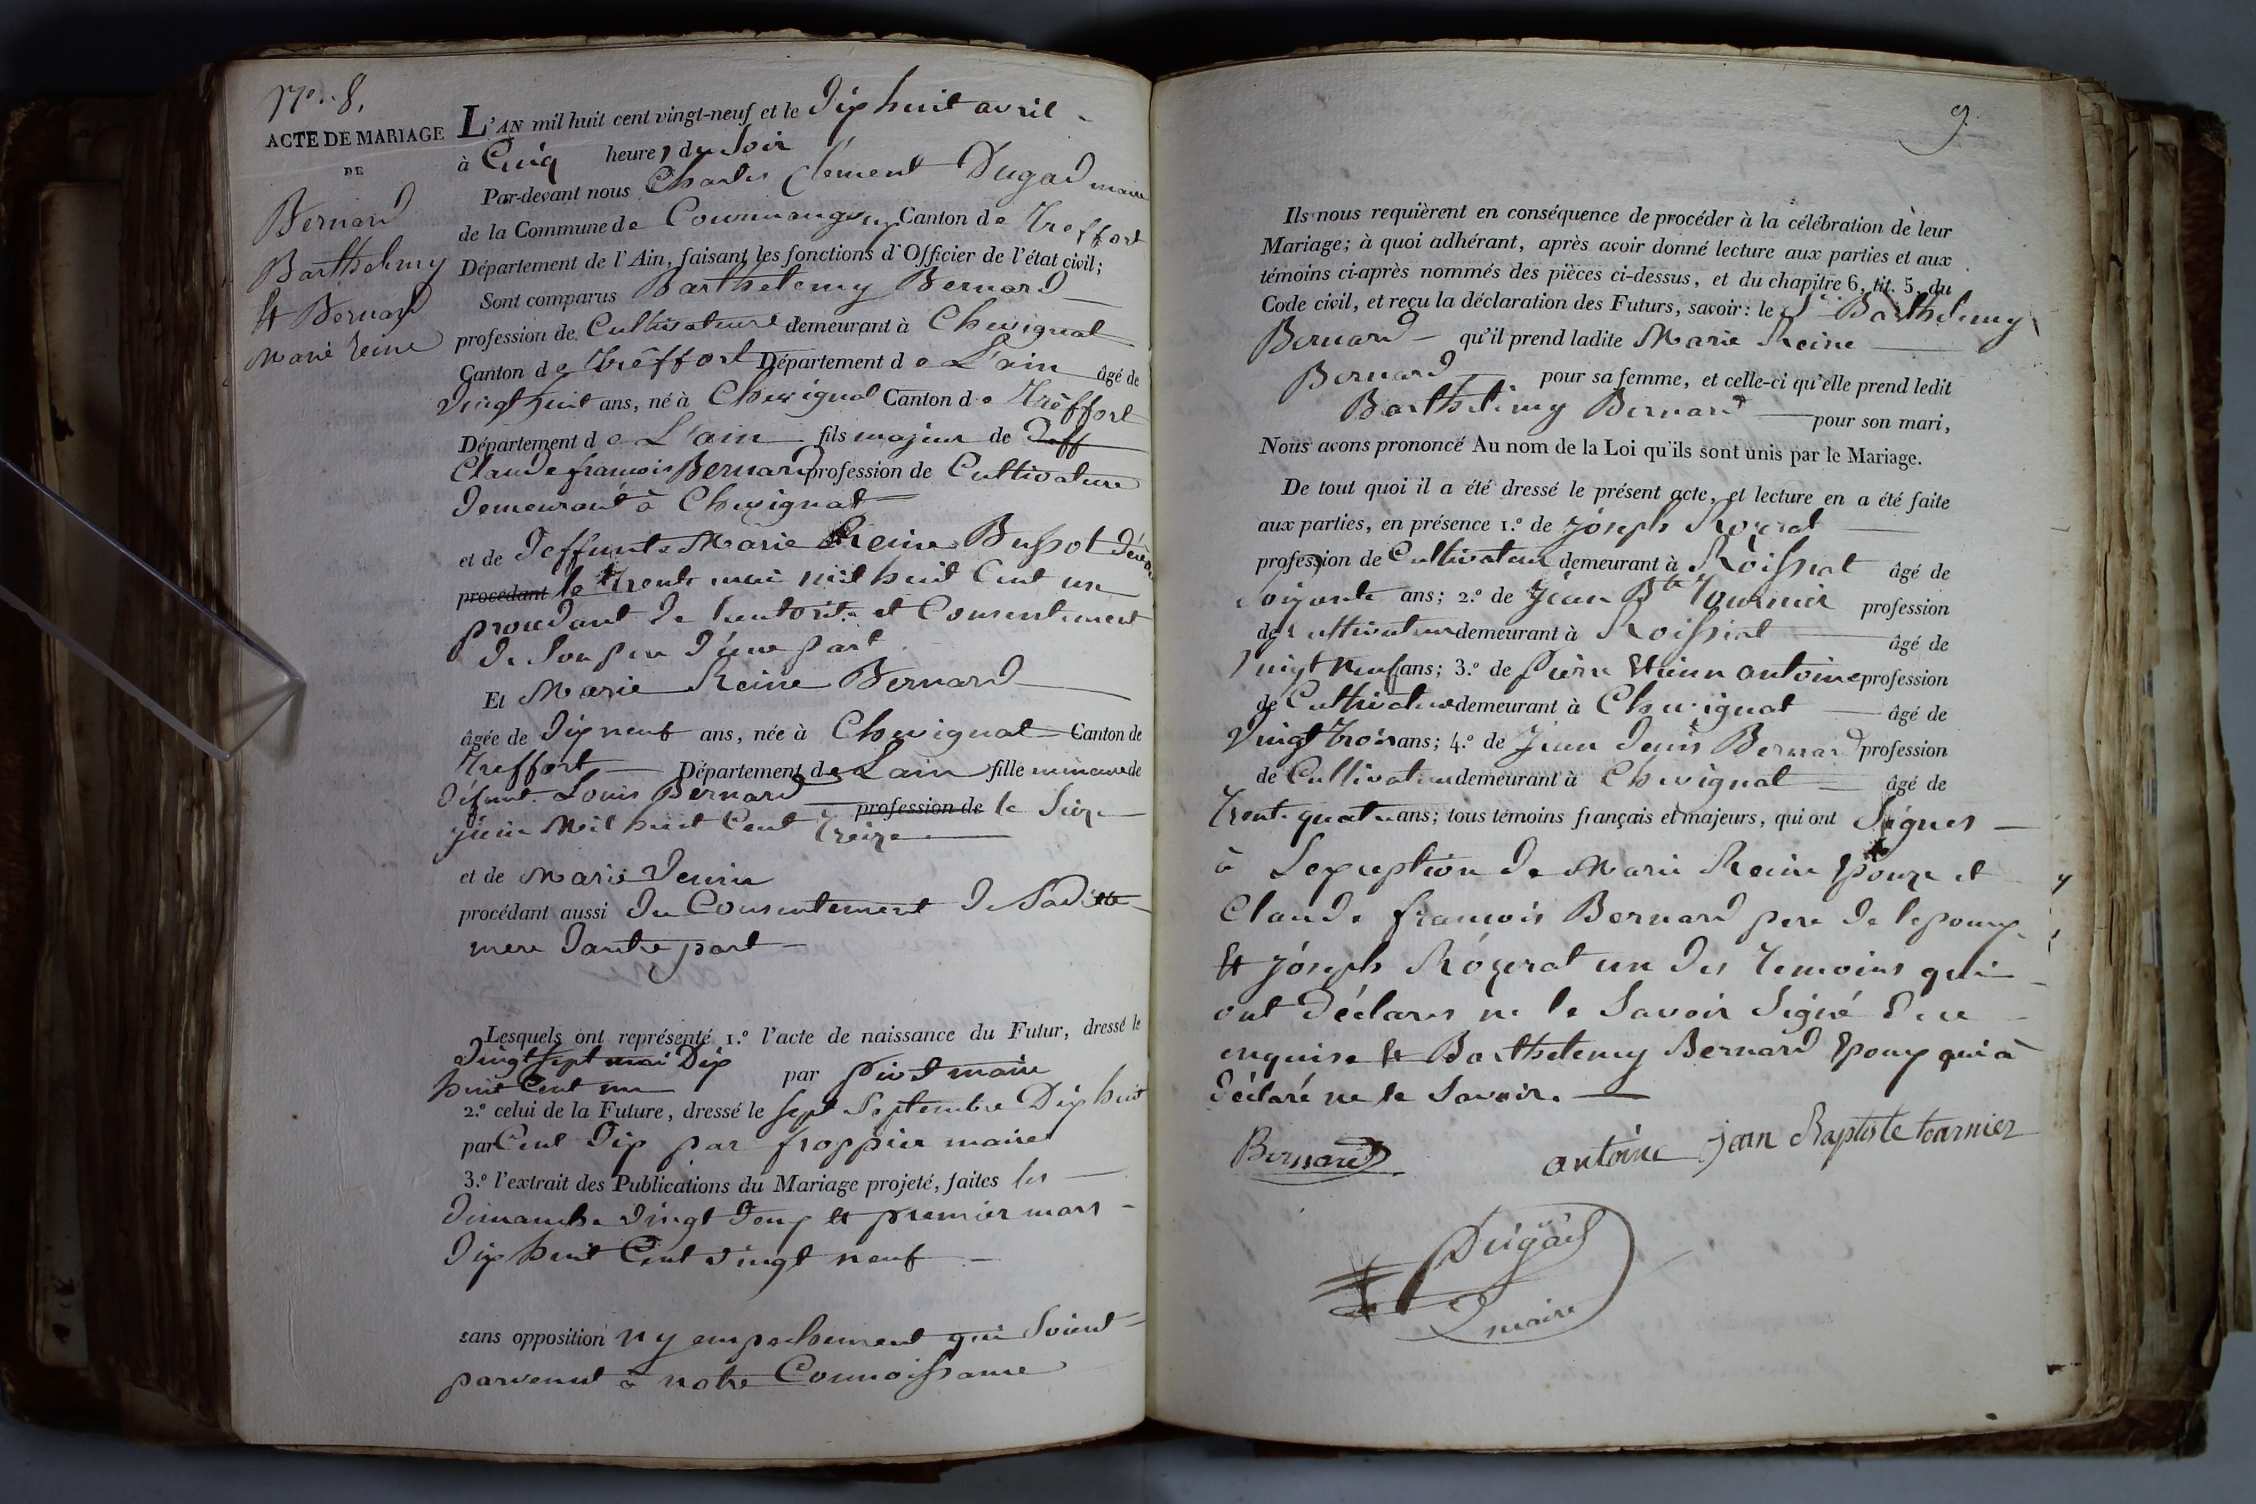 N.o 8.
ACTE DE MARIAGE
DE
Bernard
Barthelemy
Et Bernard
Marie Reine
L'AN mil huit cent vingt-neuf et le Dix huit avril
à Cinq heures du Soir
Par-devant nous Charles Clément Dugad maire
de la Commune de Courmangoux Canton de Treffort
Département de l'Ain, faisant les fonctions d'Officier de l'état civil;
Sont comparus Barthelemy Bernard
profession de Cultivateur demeurant à Chevignat
Canton de Trêffort Département de L'ain âgé de
vingt huit ans, né à Chevignat Canton de Trêffort
Département de L'ain fils majeur de deff
Claude francois Bernard profession de Cultivateur
demeurant à Chevignat
et de deffunte Marie Reine Bussot
procédant le trente mai mil huit Cent un
procedant de lautorité et Consentement
de Son pere d'une part
Et Marie Reine Bernard
âgée de dix neuf ans, née à Chevignat Canton de
Treffort Département de Lain fille mineure de
défunt Louis Bernard profession de le Seize
juin Mil huit Cent treize
et de Marie
procédant aussi du Consentement de Sadite
mere dautre part
Lesquels ont représenté 1.º l'acte de naissance du Futur, dressé le
vingt sept mai Dix
huit Cent un par maire
2.º celui de la Future, dressé le Sept Septembre Dix huit
par Cent Dix par froppier maire
3.º l'extrait des Publications du Mariage projeté, faites les
dimanche vingt deux et premier mars
Dix huit Cent vingt neuf
sans opposition ny empechement qui Soient
parvenut à notre Connoissance
9.
Ils nous requièrent en conséquence de procéder à la célébration de leur
Mariage; à quoi adhérant, après avoir donné lecture aux parties et aux
témoins ci-après nommés des pièces ci-dessus, et du chapitre 6, tit. 5, du
Code civil, et reçu la déclaration des Futurs, savoir: le Sr. Barthelemy
Bernard qu'il prend ladite Marie Reine
Bernard pour sa femme, et celle-ci qu'elle prend ledit
Barthelemy Bernard pour son mari,
Nous avons prononcé Au nom de la Loi qu'ils sont unis par le Mariage.
De tout quoi il a été dressé le présent acte, et lecture en a été faite
aux parties, en présence 1.º de joseph Rozerat
profession de Cultivateur demeurant à Roissiat âgé de
Soixante ans; 2.º de Jean Bte Tournier profession
de Cultivateur demeurant à Roissiat âgé de
vingt neuf ans; 3.º de pierre Etienn antoine profession
de Cultivateur demeurant à Chevignat âgé de
vingt trois ans; 4.º de Jean denis Bernard profession
de Cultivateur demeurant à Chevignat âgé de
trente quatre ans; tous témoins français et majeurs, qui ont Signes
à Lexception de Marie Reine Epouze et
Claude francois Bernard pere de lepoux
Et joseph Rozerat un des temoins qui
ont déclares ne le Savoir Signé de ce
enquise Et Barthelemy Bernard Epoux qui à
déclaré ne le Savoir.
Bernard antoine jean Baptiste tournier
Dugad
maire